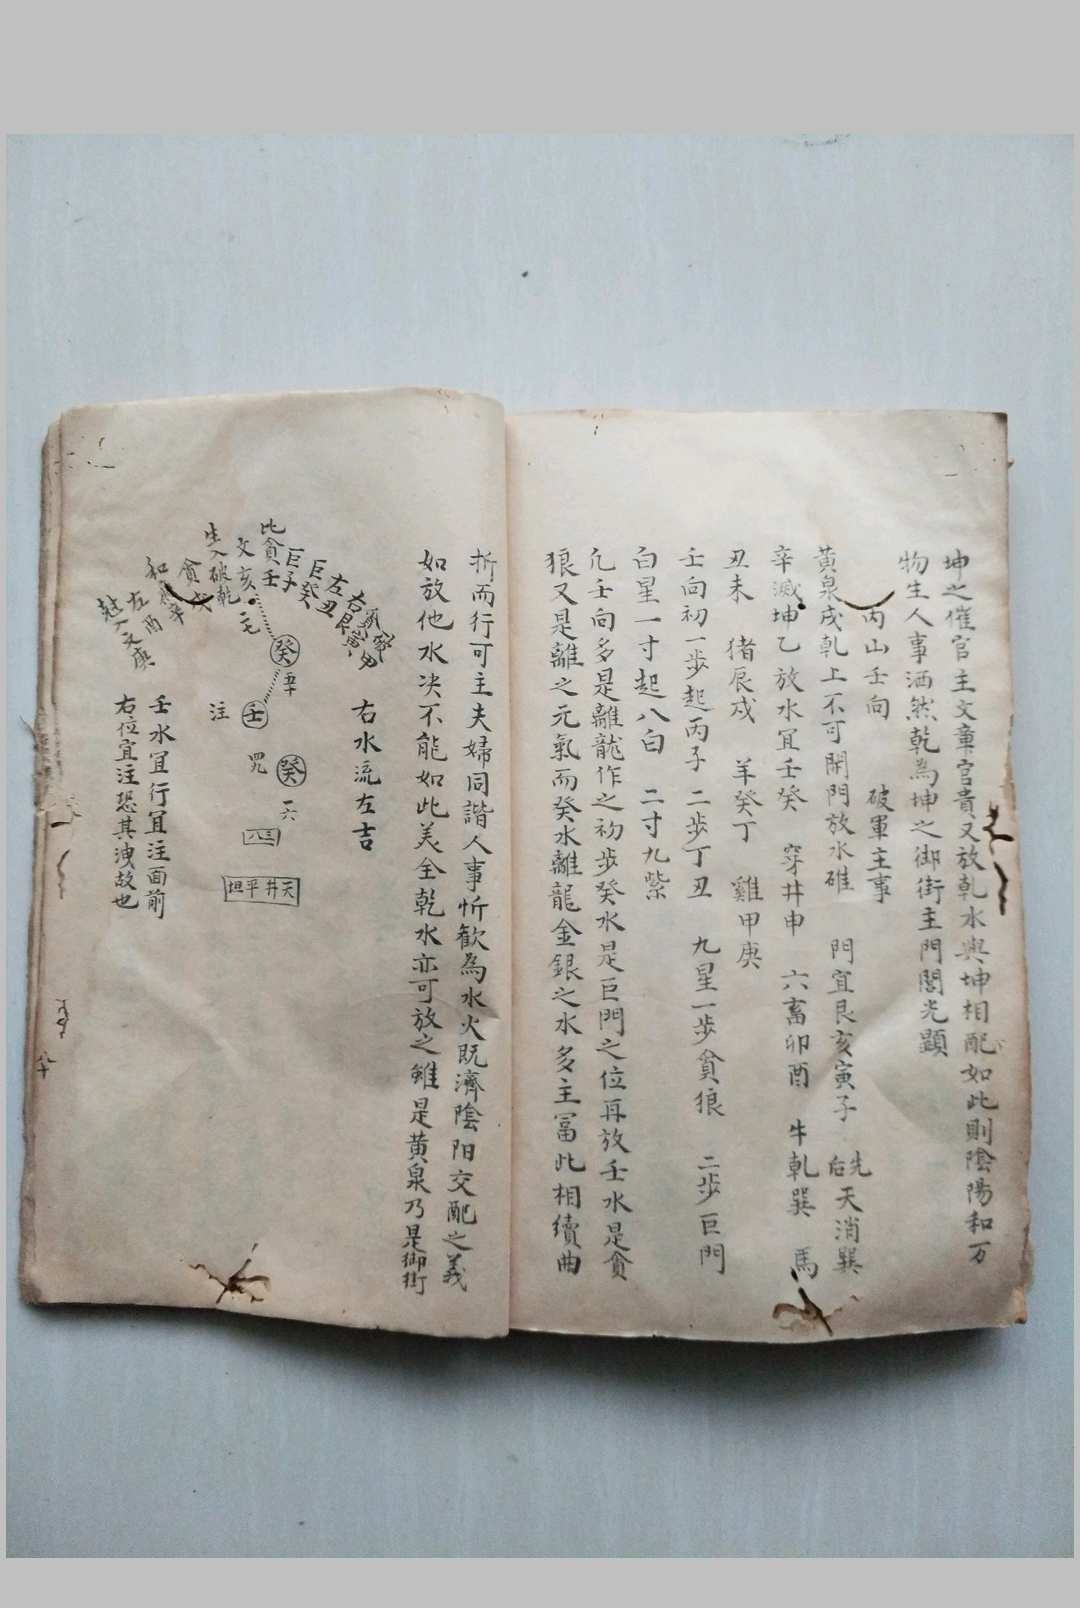 坤之催官主文章官貴又放乾水與坤相配如此則陰陽和万
物生人事洒然乾為坤之御街主門閭光顕
丙山壬向 破軍主事
黃泉戌乾上不可開門放水碓 門宜艮亥寅子 先后天消巽
辛滅坤乙放水冝壬癸 穿井申 六畜卯酉 牛乾巽 馬
丑未 猪辰戌 羊癸丁 雞甲庚
壬向初一步起丙子 二步丁丑 九星一步貪狼 二步巨門
白星一寸起八白 二寸九紫
凢壬向多是離龍作之初步癸水是巨門之位再放壬水是貪
狼又是離之元氣而癸水離龍金銀之水多主冨此相續曲
折而行可主夫婦同諧人事忻歡為水火既濟陰阳交配之義
如放他水决不能如此美全乾水亦可放之雖是黄泉乃是御街
右水流左吉
右艮寅
左丑
巨癸
巨子
比貪壬
文亥
生入破乾
貪戌
左酉
文庚
癸
壬
注
癸
天井平坦
壬水冝行冝注面前
右位宜注恐其洩故也